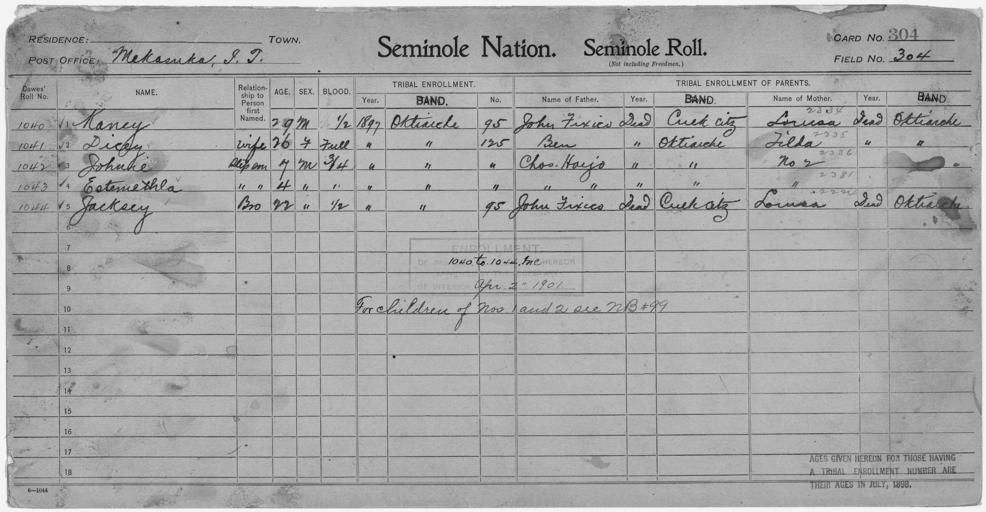 RESIDENCE: TOWN. Seminole Nation. Seminole Roll. CARD NO. 304
POST OFFICE: Mekasuka, I. T. (Not including Freedmen.) FIELD NO. 304
Dawes' Roll No. NAME. Relation-ship to Person first Named. AGE. SEX. BLOOD. TRIBAL ENROLLMENT. TRIBAL ENROLLMENT OF PARENTS.
Year. BAND. No. Name of Father. Year. BAND. Name of Mother. Year. BAND
1040 1 Haney 29 M 1/2 1897 Oktiarche 95 John Fixico Dead Cuck city Louisa Dead Oktiarche
1041 2 Dicey wife 26 F Full " " 125 Ben " Oktiarche Tilda " "
1042 3 Johnie Step son 7 M 3/4 " " " Chos. Harjo " " No 2 "
1043 4 Estemethla " " 4 " " " " " " " " " "
1044 5 Jacksey Bro 22 " 1/2 " " 95 John Fixico Dead Cuck city Louisa Dead Oktiarche
6
7 ENROLLMENT
8 1040 to 1044, Inc HEREON
9 Apr. 2" 1901
10 For children of Nos 1 and 2 see NB #99
11
12
13
14
15
16
17 AGES GIVEN HEREON FOR THOSE HAVING
A TRIBAL ENROLLMENT NUMBER ARE
18 THEIR AGES IN JULY, 1898.
6-1044